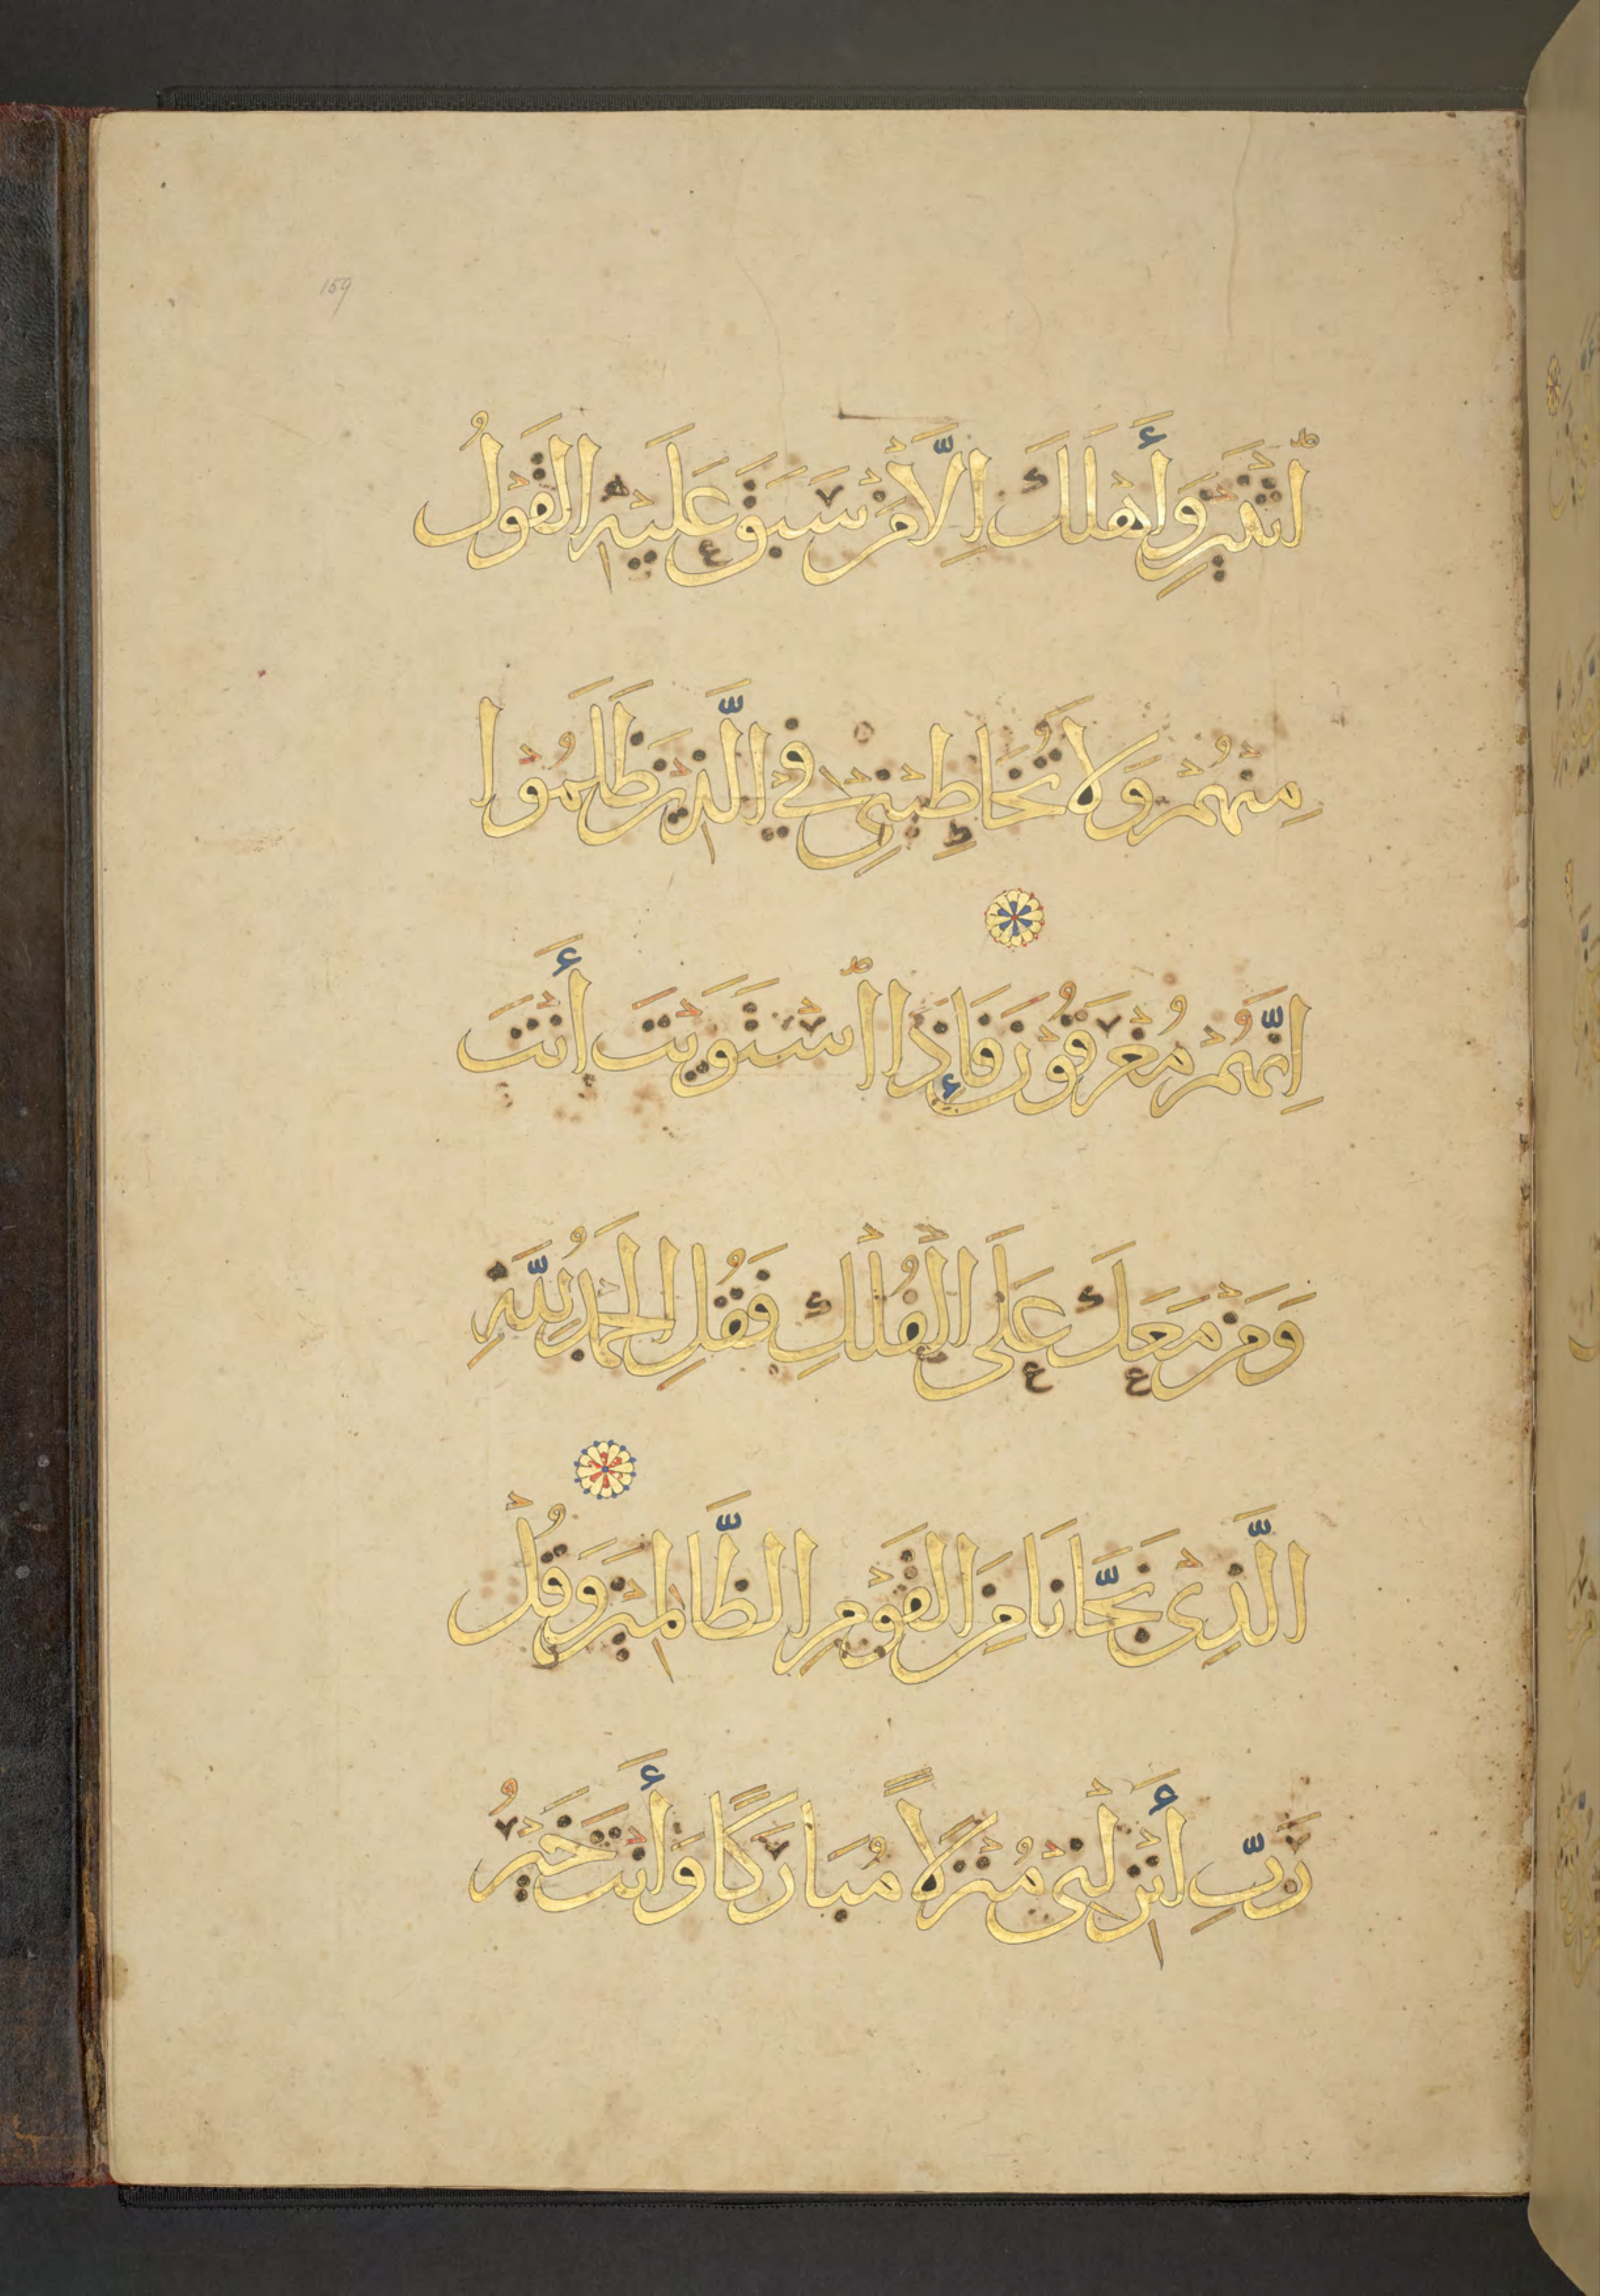 159
ٱثْنَيْنِ وَأَهْلَكَ اِلَّا مَنْ سَبَقَ عَلَيْهِ الْقَوْلُ
مِنْهُمْ وَلَا تُخَاطِبْنِى فِي الَّذِيْنَ ظَلَمُوْا
اِنَّهُمْ مُغْرَقُوْنَ فَإِذَا ٱسْتَوَيْتَ أَنْتَ
وَمَنْ مَعَكَ عَلَى الْفُلْكِ فَقُلِ الْحَمْدُ لِلَّهِ
الَّذِى نَجَّانَا مِنَ الْقَوْمِ الظَّالِمِيْنَ وَقُلْ
رَبِّ أَنْزِلْنِى مُنْزَلًا مُبَارَكًا وَأَنْتَ خَيْرُ